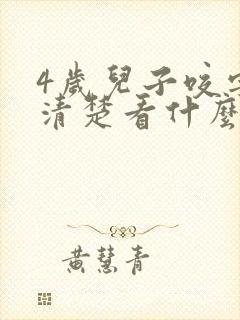 4歲兒子咬字
清楚看什麼
黃慧青